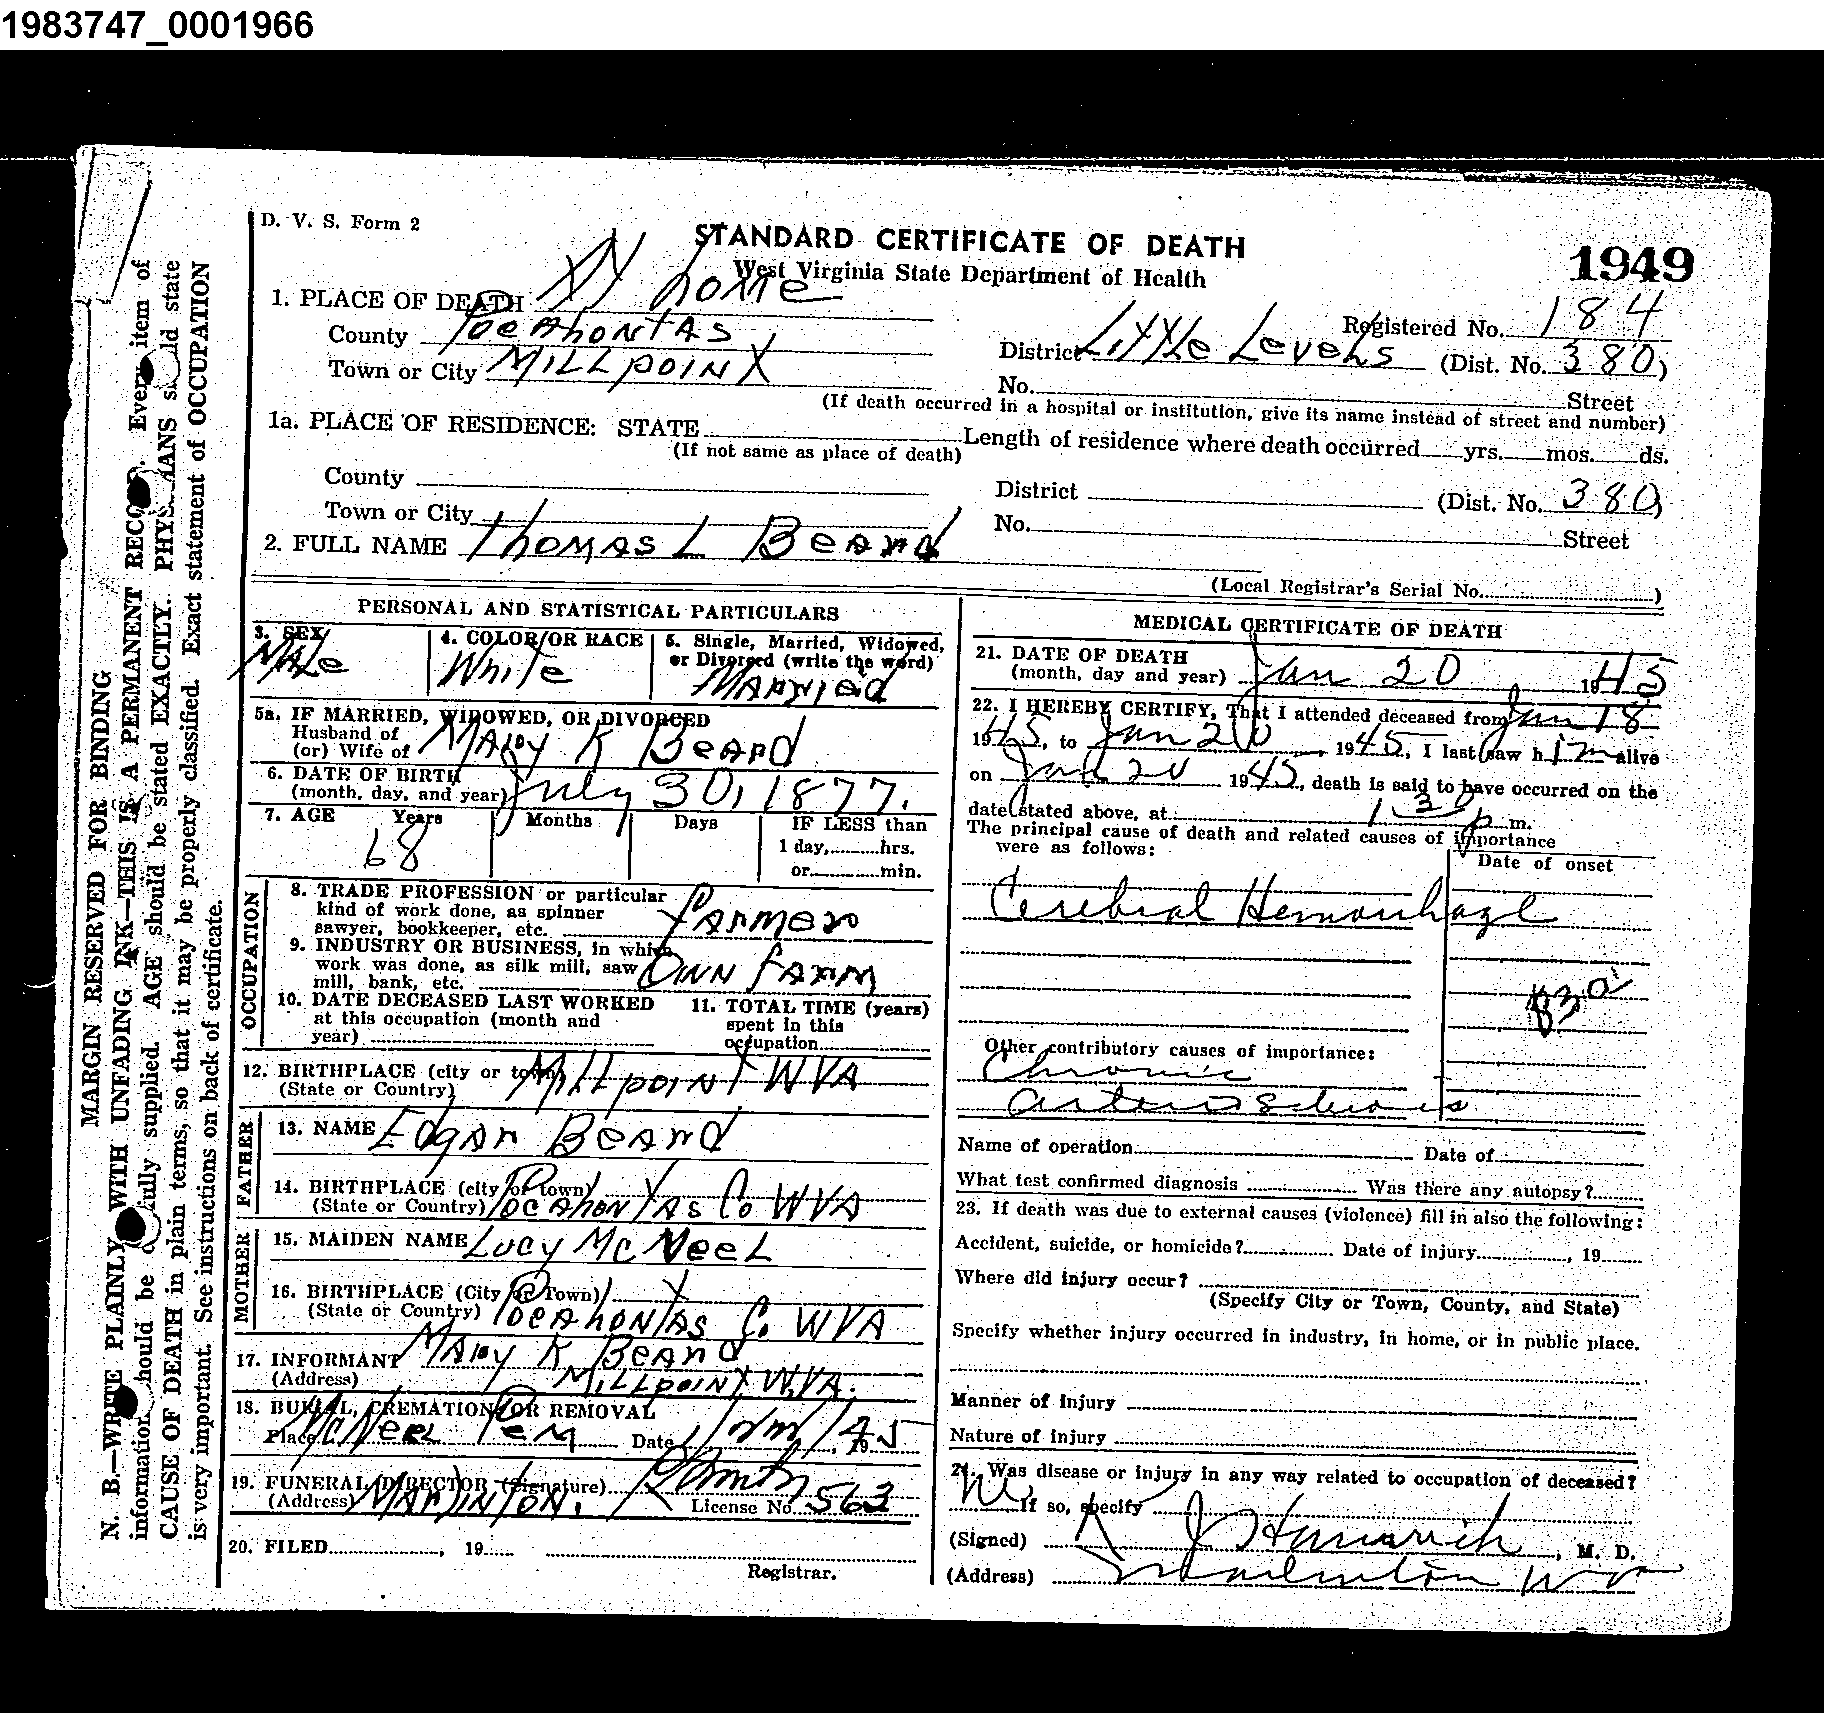 1983747_0001966
D. V. S. Form 2
STANDARD CERTIFICATE OF DEATH
West Virginia State Department of Health
1949
1. PLACE OF DEATH At home
County Pocahontas
Registered No. 184
Town or City Millpoint
District Little Levels (Dist. No. 380)
No. Street
(If death occurred in a hospital or institution, give its name instead of street and number)
1a. PLACE OF RESIDENCE: STATE
(If not same as place of death)
Length of residence where death occurred yrs. mos. ds.
County
District (Dist. No. 380)
Town or City
No. Street
2. FULL NAME Thomas L Beard
(Local Registrar's Serial No. )
PERSONAL AND STATISTICAL PARTICULARS
3. SEX Male
4. COLOR OR RACE White
5. Single, Married, Widowed,
or Divorced (write the word)
Married
5a. IF MARRIED, WIDOWED, OR DIVORCED
Husband of
(or) Wife of Mary K Beard
6. DATE OF BIRTH
(month, day, and year) July 30, 1877.
7. AGE Years Months Days IF LESS than
68
1 day, hrs.
or min.
OCCUPATION
8. TRADE PROFESSION or particular
kind of work done, as spinner
sawyer, bookkeeper, etc. Farmer
9. INDUSTRY OR BUSINESS, in which
work was done, as silk mill, saw
mill, bank, etc. Own Farm
10. DATE DECEASED LAST WORKED
at this occupation (month and
year)
11. TOTAL TIME (years)
spent in this
occupation
12. BIRTHPLACE (city or town) Millpoint WVA
(State or Country)
FATHER
13. NAME Edgar Beard
14. BIRTHPLACE (city or town)
(State or Country) Pocahontas Co WVA
MOTHER
15. MAIDEN NAME Lucy McNeel
16. BIRTHPLACE (City or Town)
(State or Country) Pocahontas Co. WVA
17. INFORMANT Mary K Beard
(Address) Millpoint W.VA.
18. BURIAL, CREMATION OR REMOVAL
Place McNeel Cem Date 1945
19. FUNERAL DIRECTOR (Signature)
(Address) Marlinton. License No. 563
20. FILED , 19
Registrar.
MEDICAL CERTIFICATE OF DEATH
21. DATE OF DEATH
(month, day and year) Jan 20 1945
22. I HEREBY CERTIFY, That I attended deceased from Jan 18
1945, to Jan 20, 1945, I last saw h im alive
on Jan 20 1945, death is said to have occurred on the
date stated above, at 1 30 p m.
The principal cause of death and related causes of importance
were as follows:
Date of onset
Cerebral Hemorrhage
83a
Other contributory causes of importance:
Chronic
arteriosclerosis
Name of operation Date of
What test confirmed diagnosis Was there any autopsy?
23. If death was due to external causes (violence) fill in also the following:
Accident, suicide, or homicide? Date of injury , 19
Where did injury occur?
(Specify City or Town, County, and State)
Specify whether injury occurred in industry, in home, or in public place.
Manner of injury
Nature of injury
24. Was disease or injury in any way related to occupation of deceased?
No If so, specify
(Signed) , M. D.
(Address) Marlinton W Va
MARGIN RESERVED FOR BINDING
N. B.—WRITE PLAINLY WITH UNFADING INK—THIS IS A PERMANENT RECORD. Every item of
information should be carefully supplied. AGE should be stated EXACTLY. PHYSICIANS should state
CAUSE OF DEATH in plain terms, so that it may be properly classified. Exact statement of OCCUPATION
is very important. See instructions on back of certificate.